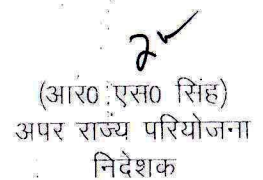 (आर० एस० सिंह)
अपर राज्य परियोजना
निदेशक